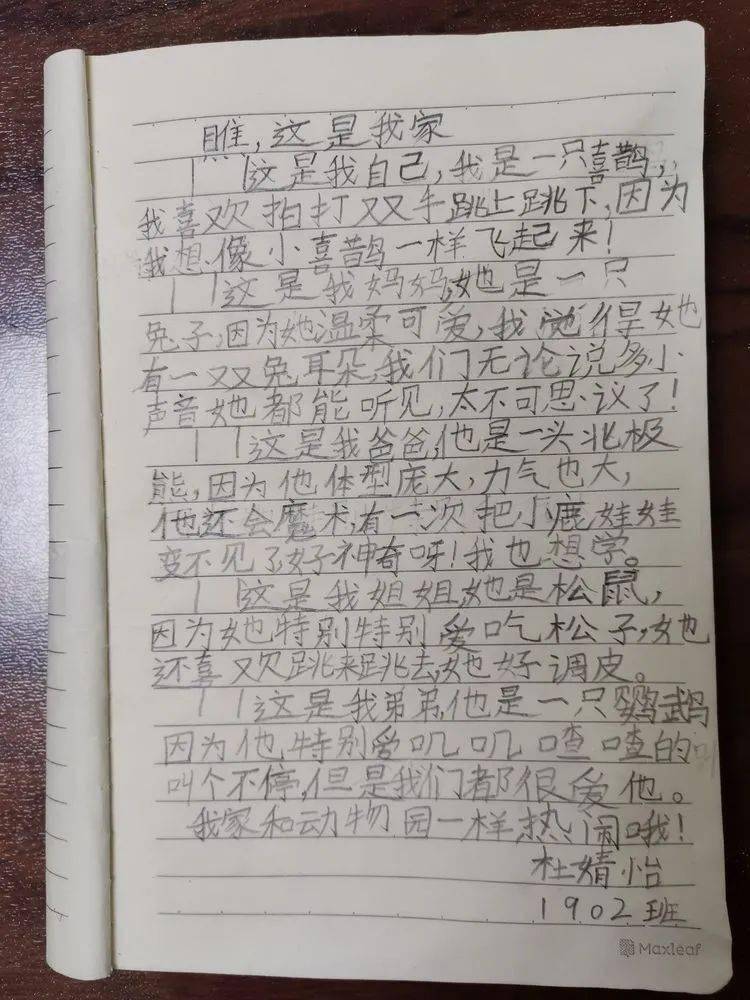 瞧，这是我家
这是我自己，我是一只喜鹊，
我喜欢拍打双手，跳上跳下，因为
我想像小喜鹊一样飞起来！
这是我妈妈，她也是一只
兔子，因为她温柔可爱，我觉得她
有一双兔耳朵，我们无论说多小
声音她都能听见，太不可思议了！
这是我爸爸，他是一头北极
能，因为他体型庞大，力气也大，
他还会魔术，有一次把小鹿娃娃
变不见了，好神奇呀！我也想学。
这是我姐姐，她是松鼠，
因为她特别特别爱吃松子，她
还喜欢跳来跳去，她好调皮。
这是我弟弟，他是一只鹦鹉
因为他，特别爱叽叽喳喳的
叫个不停，但是我们都很爱他。
我家和动物园一样热闹哦！
杜婧怡
1902班
Maxleaf